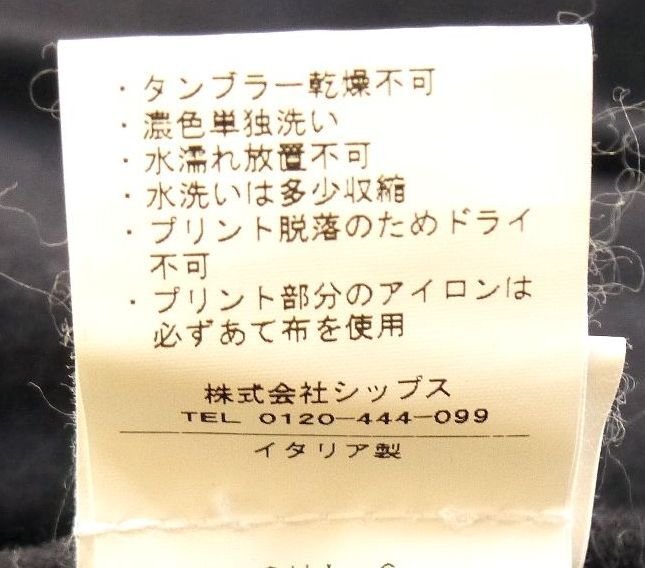 ・タンブラー乾燥不可
・濃色単独洗い
・水濡れ放置不可
・水洗いは多少収縮
・プリント脱落のためドライ
不可
・プリント部分のアイロンは
必ずあて布を使用
株式会社シップス
TEL 0120-444-099
イタリア製